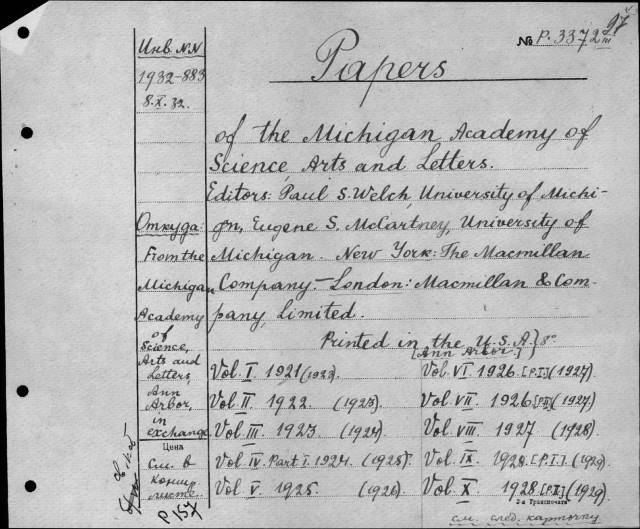 97
№ P. 3372 III
Инв. NN
1932-883
8.X.32.
Papers
of the Michigan Academy of
Science, Arts and Letters.
Editors: Paul S. Welch, University of Michi-
gn, Eugene S. McCartney, University of
Michigan. New York: The Macmillan
Company. — London: Macmillan & Com-
pany, Limited.
Откуда:
From the
Michigan
Academy
of
Science,
Arts and
Letters,
Ann
Arbor,
in
exchange
Цена
см. в
концѣ
листе.
P 157
Printed in the U.S.A. } 8°
[Ann Arbor.]
Vol. I. 1921 (1923).
Vol. II. 1922. (1923).
Vol. III. 1923. (1924).
Vol. IV. Part I. 1924. (1925).
Vol. V. 1925 (1926).
Vol. VI. 1926. [P.I.] (1927)
Vol. VII. 1926 [P.II.] (1927)
Vol. VIII. 1927 (1928).
Vol. IX. 1928. [P.I.]. (1929).
Vol. X. 1928 [P.II] (1929).
см. след. карточку